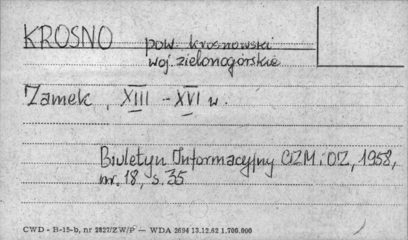 KROSNO pow. krosnowski
woj. zielonogórskie
Zamek, XIII - XVI w.
Biuletyn Informacyjny CZM i OZ, 1958,
nr. 18, s. 35
CWD - B-15-b, nr 2827/ZW/P — WDA 3694 13.12.62 1.700.000